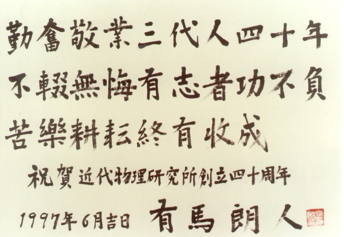 勤奮敬業三代人四十年
不輟無悔有志者功不負
苦樂耕耘終有收成
祝賀近代物理研究所創立四十周年
1997年6月吉日 有馬朗人